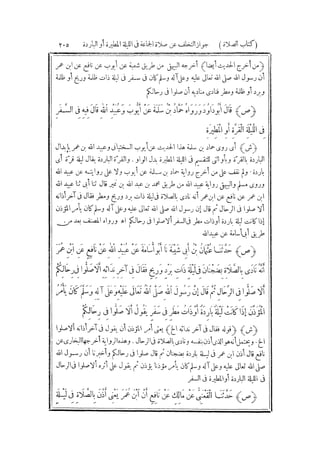 (كتاب الصلاة) جواز التخلف عن صلاة الجماعة فى الليلة المطيرة أو الباردة ٢٠٥
(من أخرج الحديث أيضا) أخرجه البيهقى من طريق شعبة عن أيوب عن نافع عن ابن عمر
أن رسول الله صلى الله تعالى عليه وعلى آله وسلم كان فى سفر فى ليلة ذات ظلمة وريح أو ظلمة
وبرد أو ظلمة ومطر فنادى مناديه أن صلوا فى رحالكم
﴿ص﴾ قَالَ أَبُو دَاوُدَ وَرَوَاهُ حَمَّادُ بْنُ سَلَمَةَ عَنْ أَيُّوبَ وَعُبَيْدِ اللهِ قَالَ فِيهِ فِى السَّفَرِ
فِى اللَّيْلَةِ الْقَرَّةِ أَوِ الْمَطِيرَةِ
﴿ش﴾ أى روى حماد بن سلمة هذا الحديث عن أيوب السختيانى وعبيد الله بن عمر بإبدال
الباردة بالقرة وأو التى للتقسيم فى الليلة المطيرة بدل الواو . والقرة الباردة يقال ليلة قرة أى
باردة. ولم نقف على من أخرج رواية حماد بن سلمة عن أيوب ولا على روايته عن عبيد الله
وروى مسلم والبيهقى رواية عبيد الله من طريق محمد بن عبد الله بن نمير قال ثنا أبى ثنا عبيد الله
ابن عمر عن نافع عن ابن عمر أنه نادى بالصلاة فى ليلة ذات برد وريح ومطر فقال فى آخر أذانه
ألا صلوا فى الرحال ثم قال إن رسول الله صلى الله تعالى عليه وعلى آله وسلم كان يأمر المؤذن
إذا كانت ليلة باردة أو ذات مطر فى السفر ألا صلوا فى رحالكم اه ورواه المصنف بعد من
طريق أبى أسامة عن عبيد الله
﴿ص﴾ حَدَّثَنَا عُثْمَانُ بْنُ أَبِى شَيْبَةَ نَا أَبُو أُسَامَةَ عَنْ عُبَيْدِ اللهِ عَنْ نَافِعٍ عَنِ ابْنِ عُمَرَ
أَنَّهُ نَادَى بِالصَّلَاةِ بِضَجْنَانَ فِى لَيْلَةٍ ذَاتِ بَرْدٍ وَرِيحٍ فَقَالَ فِى آخِرِ نِدَائِهِ أَلَا صَلُّوا فِى رِحَالِكُمْ
أَلَا صَلُّوا فِى الرِّحَالِ ثُمَّ قَالَ إِنَّ رَسُولَ اللهِ صَلَّى اللهُ تَعَالَى عَلَيْهِ وَعَلَى آلِهِ وَسَلَّمَ كَانَ يَأْمُرُ
الْمُؤَذِّنَ إِذَا كَانَتْ لَيْلَةٌ بَارِدَةٌ أَوْ ذَاتُ مَطَرٍ فِى سَفَرٍ يَقُولُ أَلَا صَلُّوا فِى رِحَالِكُمْ
﴿ش﴾ (قوله فقال فى آخر ندائه الخ) يعنى أمر المؤذن أن يقول فى آخر أذانه ألا صلوا
الخ. ويحتمل أنه هو الذى أذن بنفسه ونادى بالصلاة فى الرحال. وهذه الرواية أخرجها البخارى عن
نافع قال أذن ابن عمر فى ليلة باردة بضجنان ثم قال صلوا فى رحالكم وأخبرنا أن رسول الله
صلى الله تعالى عليه وعلى آله وسلم كان يأمر مؤذنا يؤذن ثم يقول على أثره ألا صلوا فى الرحال
فى الليلة الباردة أو المطيرة فى السفر
﴿ص﴾ حَدَّثَنَا الْقَعْنَبِىُّ عَنْ مَالِكٍ عَنْ نَافِعٍ أَنَّ ابْنَ عُمَرَ يَعْنِى أَذَّنَ بِالصَّلَاةِ فِى لَيْلَةٍ